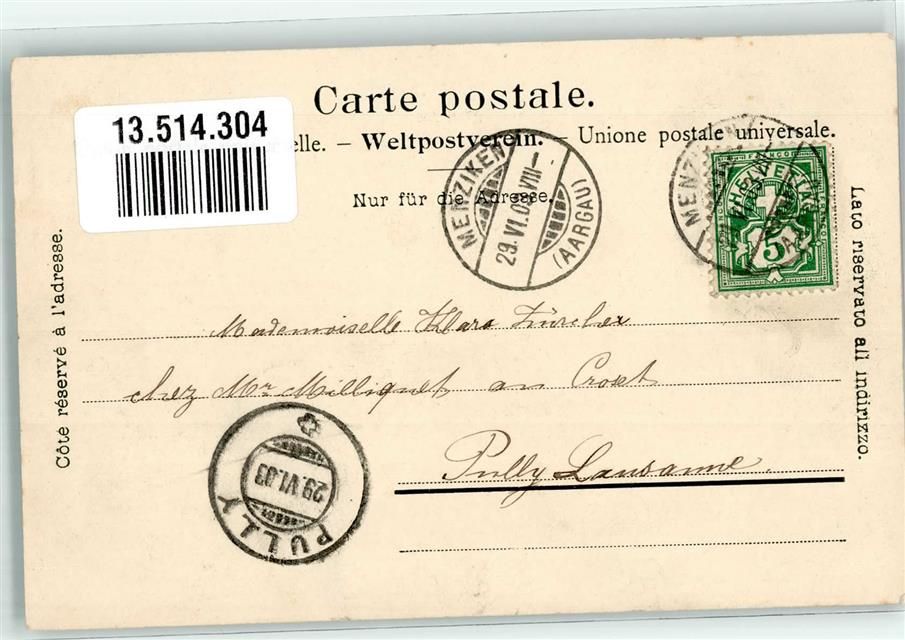 Carte postale.
13.514.304
elle. – Weltpostverein. – Unione postale universale.
Nur für die Adresse.
MENZIKEN
29.VI.03.VIII–
(AARGAU)
MENZIKEN
HELVETIA
FRANCO
5
Côte réservé à l'adresse.
Lato riservato all indirizzo.
Mademoiselle Klara Zürcher
chez Mr Milliquet au Croset
Pully Lausanne.
PULLY
29.VI.03